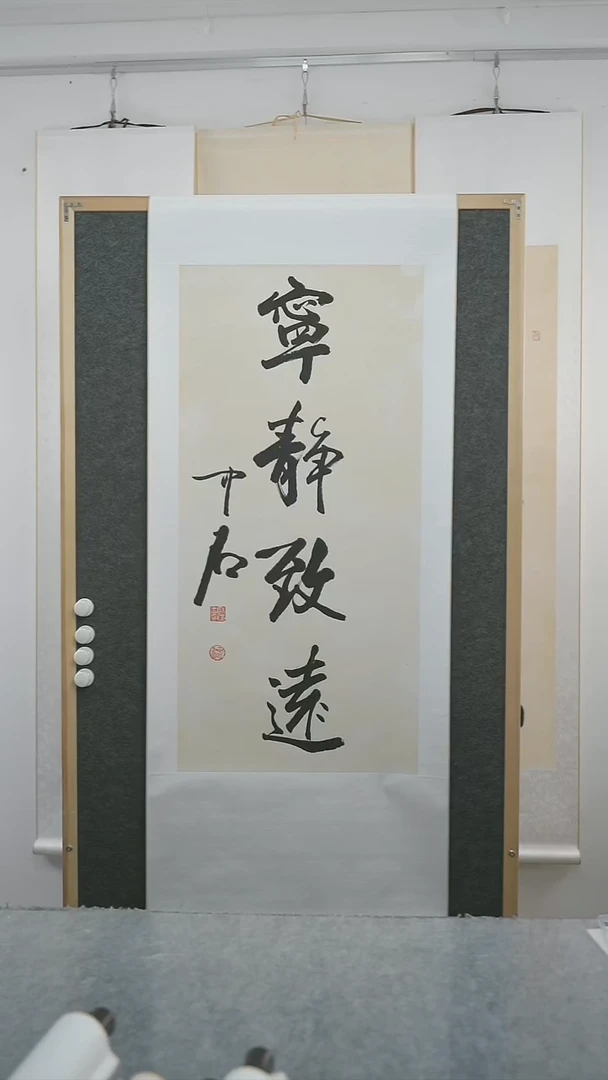 寧靜致遠
中石